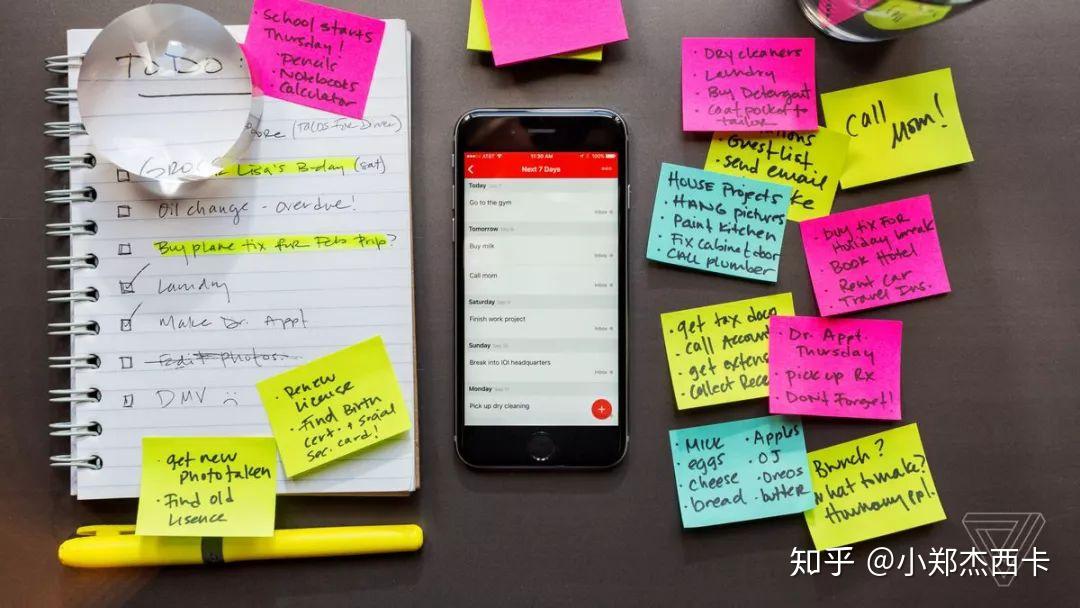 To Do:
(TACOS FOR DINNER)
Lisa's B-day (sat)
Oil change - overdue!
Buy plane tix for Feb trip?
Laundry
Make Dr. Appt
Edit Photos
DMV
· School starts
Thursday!
· Pencils
· Notebooks
· Calculator
· Renew
License
· Find Birth
Cert. + Social
Sec. card!
· get new
photo taken
· Find old
Lisence
AT&T
11:30 AM
100%
Next 7 Days
Today
Go to the gym
Inbox
Tomorrow
Buy milk
Inbox
Call mom
Inbox
Saturday
Finish work project
Inbox
Sunday
Break into IOI headquarters
Inbox
Monday
Pick up dry cleaning
· Dry cleaners
· Laundry
· Buy Detergent
· coat pocket to
tailor
Call
Mom!
· Guest list
· send email
· HOUSE Projects
· HANG pictures
· Paint Kitchen
· Fix cabinet door
· CALL plumber
· Buy tix FOR
Holiday break
· Book Hotel
· Rent Car
· Travel Ins.
· get tax docs
· call Account
· get extens
· Collect Rece
· Dr. Appt.
Thursday
· pick up Rx
· Don't Forget!
· Milk · Apples
· eggs · OJ
· cheese · Oreos
· bread · butter
Brunch?
what to make?
How many ppl.
知乎 @小郑杰西卡